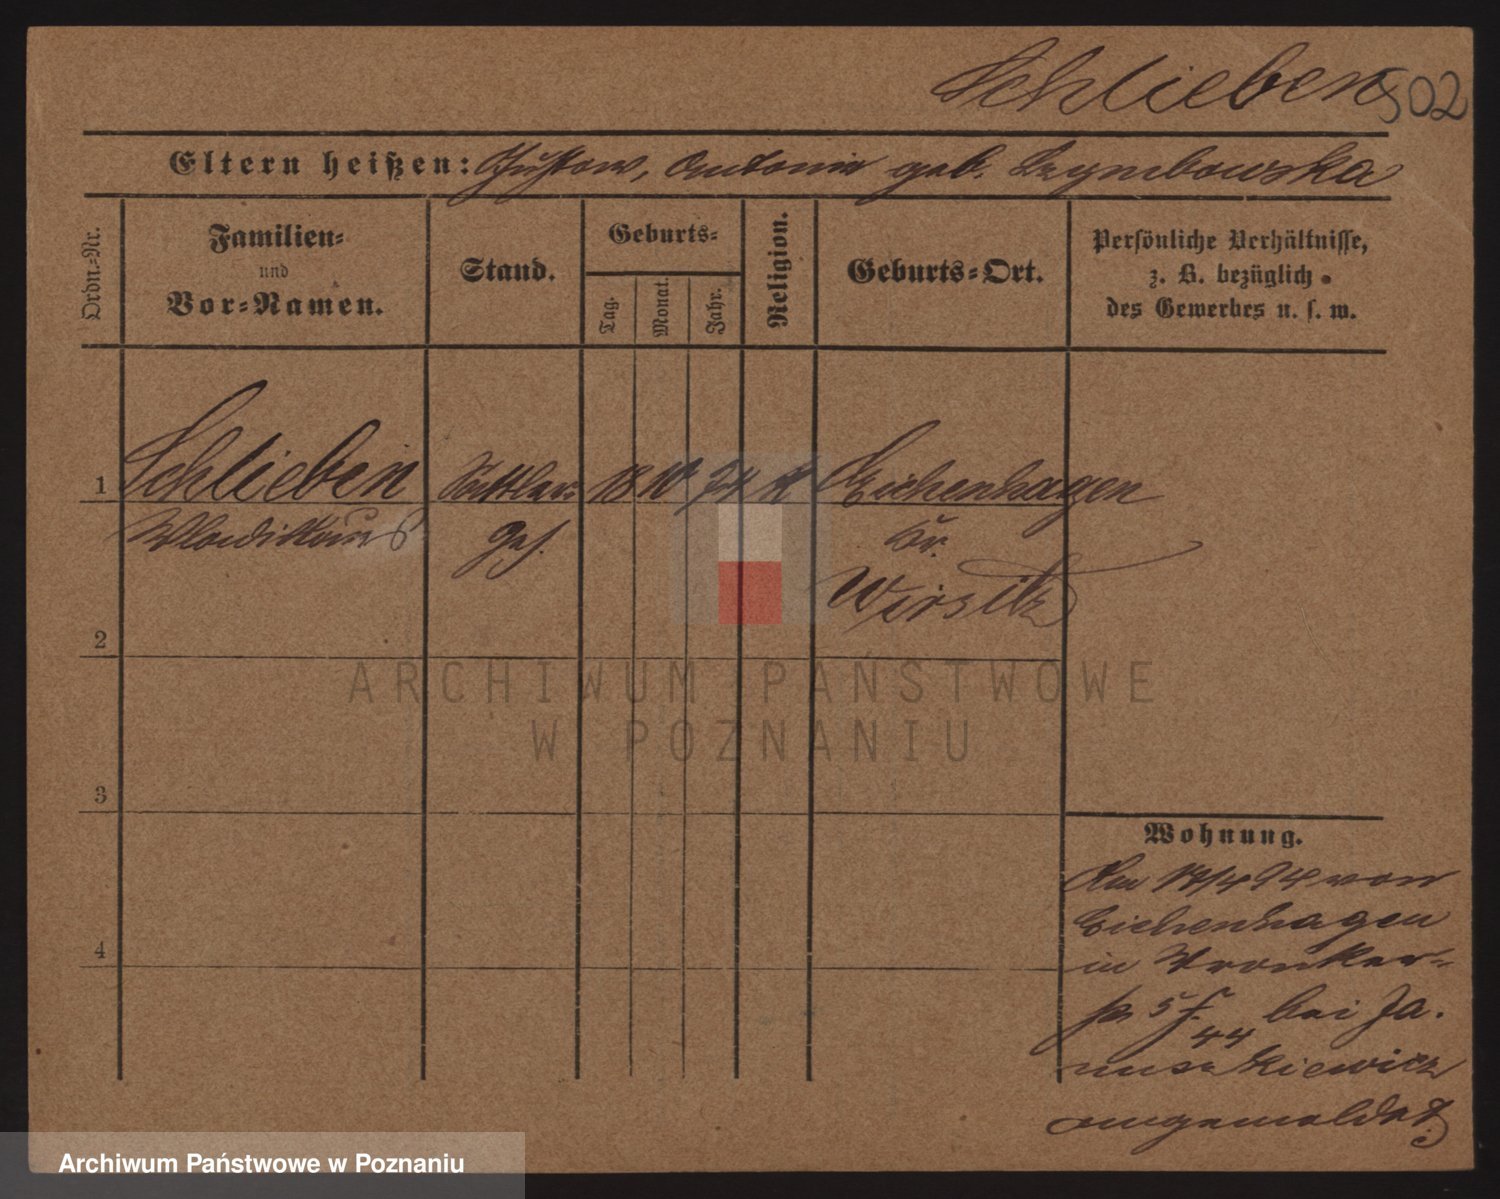 Schlieben 502
Eltern heißen: Gustav, Antonie geb. Dzymbowska
Ordn.-Nr.
Familien-
und
Vor-Namen.
Stand.
Geburts-
Tag.
Monat.
Jahr.
Religion.
Geburts-Ort.
Persönliche Verhältnisse,
z. B. bezüglich
des Gewerbes u. s. w.
1 Schlieben Sattler 18 10 74 k Eichenhagen
Wladislaus Ges. Kr.
Wirsitz
2
3
4
ARCHIWUM PAŃSTWOWE
W POZNANIU
Wohnung.
Am 14/4 94 von
Eichenhagen
in Wronker-
str 5
44 bei Ja-
nuszkiewicz
angemeldet
Archiwum Państwowe w Poznaniu